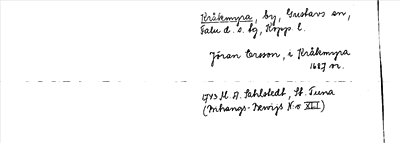 Kråkmyra, by, Gustavs sn,
Falu d. s. fg, Kopp. l.
Jöran Ersson, i Kråkmyra
1687 nr.
1743 M. A. Sahlstedt, St. Tuna
(Anhangs-Bewijs N:o XLI)